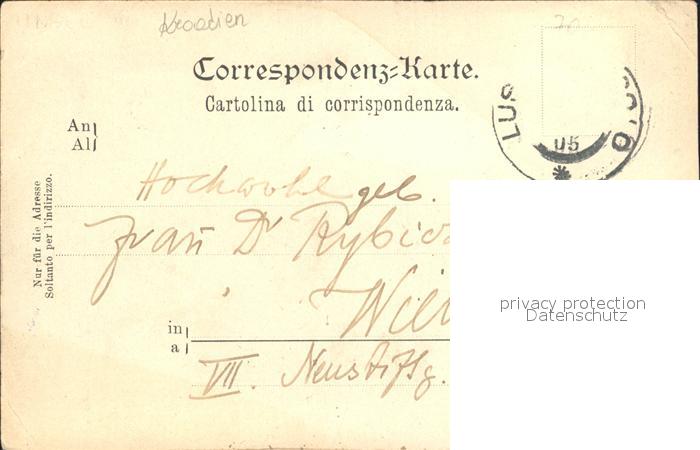 Kroatien
Correspondenz-Karte.
Cartolina di corrispondenza.
An
Al
Nur für die Adresse
Soltanto per l'indirizzo.
LUS
05
Hochwohlgeb.
Frau Dr Rybic
Wie
in
a
VII. Neustiftg.
privacy protection
Datenschutz